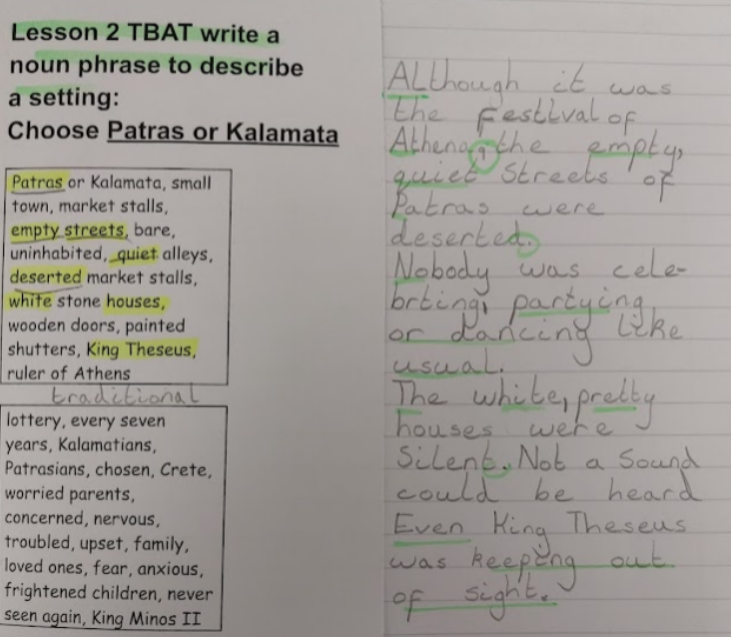 Lesson 2 TBAT write a
noun phrase to describe
a setting:
Choose Patras or Kalamata
Patras or Kalamata, small
town, market stalls,
empty streets, bare,
uninhabited, quiet alleys,
deserted market stalls,
white stone houses,
wooden doors, painted
shutters, King Theseus,
ruler of Athens
traditional
lottery, every seven
years, Kalamatians,
Patrasians, chosen, Crete,
worried parents,
concerned, nervous,
troubled, upset, family,
loved ones, fear, anxious,
frightened children, never
seen again, King Minos II
ALthough it was
the Festival of
Athena, the empty,
quiet Streets of
Patras were
deserted.
Nobody was cele-
brting, partying
or dancing like
usual.
The white, pretty
houses were
Silent. Not a Sound
could be heard
Even King Theseus
was keeping out
of sight.